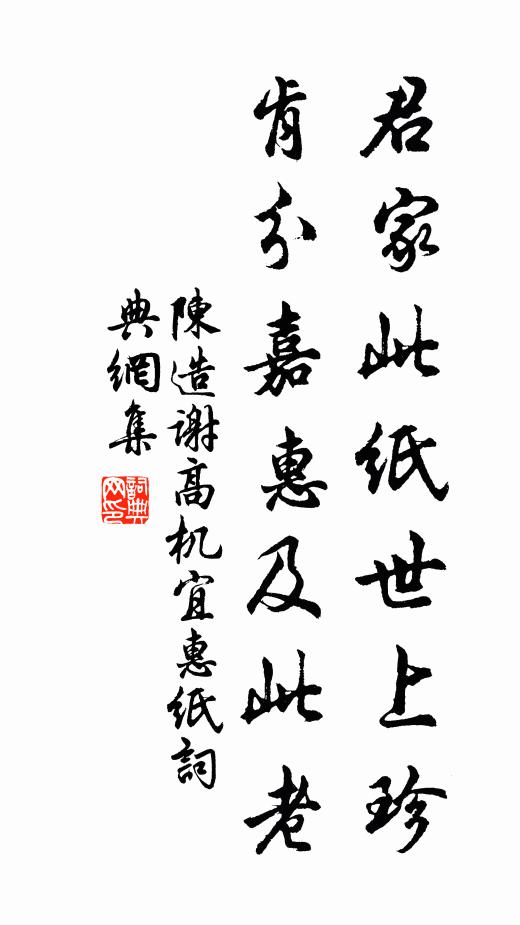 君家此紙世上珍
肯分嘉惠及此老
陳造謝高机宜惠紙詞
典網集
詞典
网印